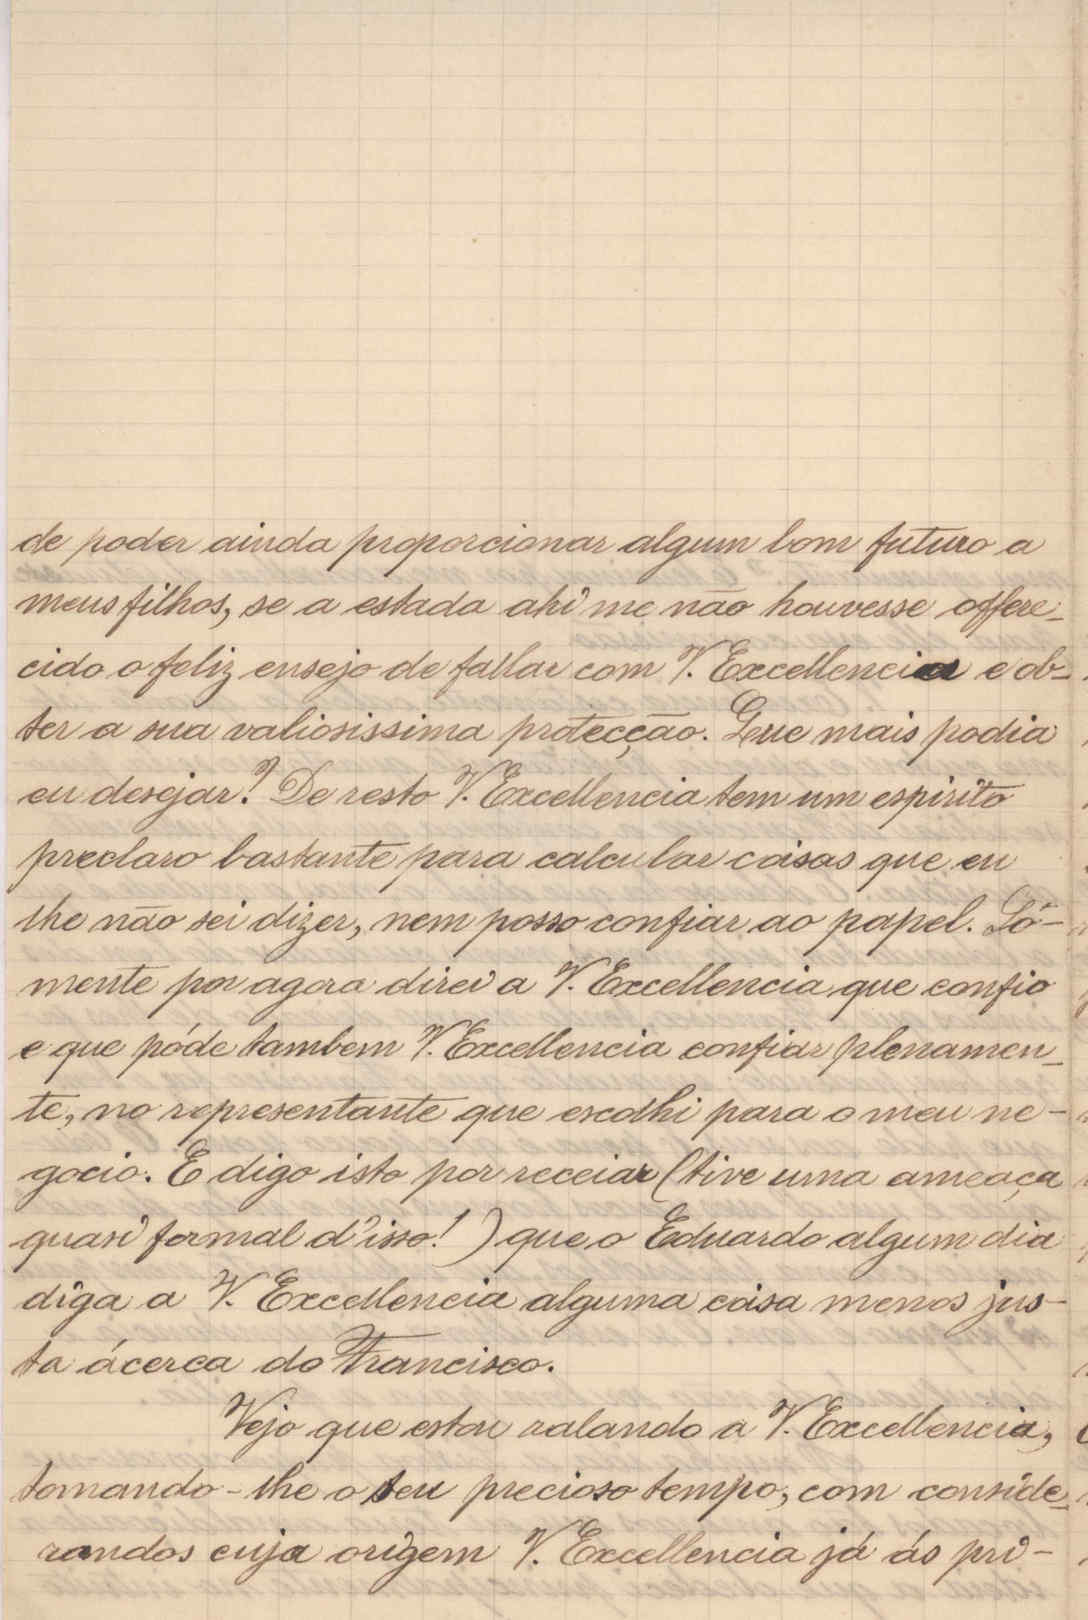 de poder ainda proporcionar algum bom futuro a
meus filhos, se a estada ahi me não houvesse offere-
cido o feliz ensejo de fallar com V. Excellencia e ob-
ter a sua valiosissima protecção. Que mais podia
eu desejar? De resto V. Excellencia tem um espirito
preclaro bastante para calcular coisas que eu
lhe não sei dizer, nem posso confiar ao papel. Só-
mente por agora direi a V. Excellencia que confio
e que póde tambem V. Excellencia confiar plenamen-
te, no representante que escolhi para o meu ne-
gocio. E digo isto por receiar (tive uma ameaça
quasi formal d'isso!) que o Eduardo algum dia
diga a V. Excellencia alguma coisa menos jus-
ta ácerca do Francisco.
Vejo que estou ralando a V. Excellencia,
tomando-lhe o seu precioso tempo, com conside-
randos cuja origem V. Excellencia já ás pri-